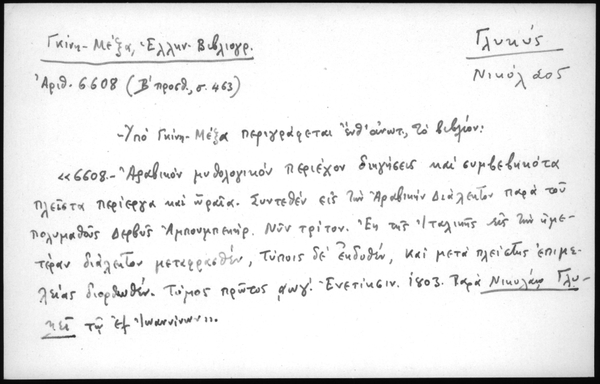 Γκίνη-Μέξα, Ἑλλην. Βιβλιογρ.
Γλυκύς
Ἀριθ. 6608 (Β΄ προσθ., σ. 463)
Νικόλαος
-Ὑπό Γκίνη-Μέξα περιγράφεται ἔνθ' ἀνωτ., τό βιβλίον:
«6608.- Ἀραβικόν μυθολογικόν περιέχον διηγήσεις καί συμβεβηκότα
πλεῖστα περίεργα καί ὡραῖα. Συντεθέν εἰς τήν Ἀραβικήν Διάλεκτον παρά τοῦ
πολυμαθοῦς Δερβύς Ἀμπουμπεκήρ. Νῦν τρίτον. Ἐκ τῆς Ἰταλικῆς εἰς τήν ἡμε-
τέραν διάλεκτον μεταφρασθέν, τύποις δέ ἐκδοθέν, καί μετά πλείστης ἐπιμε-
λείας διορθωθέν. Τόμος πρῶτος, αωγ΄. Ἐνετίησιν. 1803. Παρά Νικολάῳ Γλυ-
κεῖ τῷ ἐξ Ἰωαννίνων».